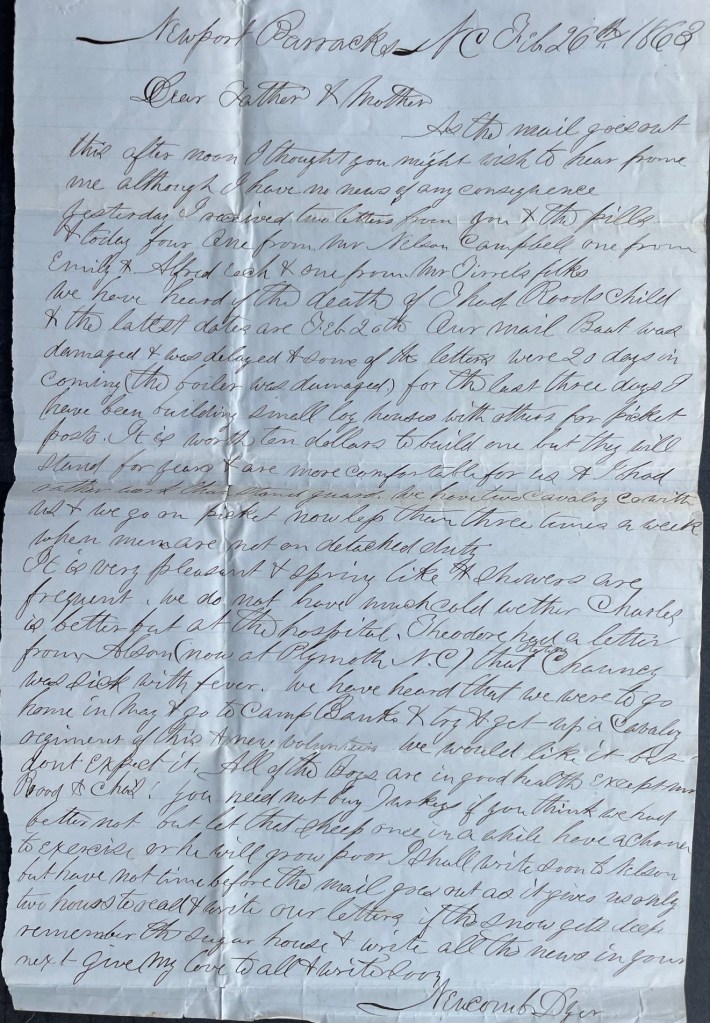 Newport Barracks NC Feb 26th 1863
Dear Father & Mother
As the mail goes out
this after noon I thought you might wish to hear from
me although I have no news of any consequence
yesterday I received two letters from you & the pills
& today four One from Mr Nelson Campbell one from
Emily & Alfred each & one from Mr Tirrels folks
We have heard of the death of Thad Roods child
& the latest dates are Feb 20th Our mail Boat was
damaged & was delayed & some of the letters were 20 days in
coming (the boiler was damaged) for the last three days I
have been building small log houses with others for picket
posts. It is worth ten dollars to build one but they will
stand for years & are more comfortable for us & I had
rather work than stand guard. We have two Cavalry co with
us & we go on picket now less than three times a week
when men are not on detached duty
It is very pleasant & spring like & showers are
frequent. we do not have much cold wether Charles
is better but at the hospital. Theodore had a letter
from (now at Plymoth N.C.) that Chauncy
was sick with fever. We have heard that we were to go
home in May & go to Camp Banks & try & get up a Cavalry
regiment of this & new volunteers we would like it but
dont expect it. All of the Boys are in good health except
Rood & Chas! you need not buy Turkeys if you think we had
better not but let that sheep once in a while have a chance
to exercise or he will grow poor. I shall write soon to Nelson
but have not time before the mail goes out as it gives us only
two hours to read & write our letters if the snow gets deep
remember the sugar house & write all the news in your
next give My Love to all & write soon
Newcomb Dyer